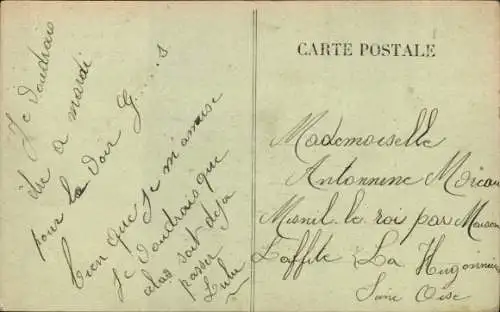 Je voudrais
être a mardi
pour la voir G.....s
bien que je m'amuse
Je voudrais que
cela soit deja
passé
Lulu
CARTE POSTALE
Mademoiselle
Antonnene
Mesnil le roi par Maison
Laffite La Hugonnière
Seine Oise